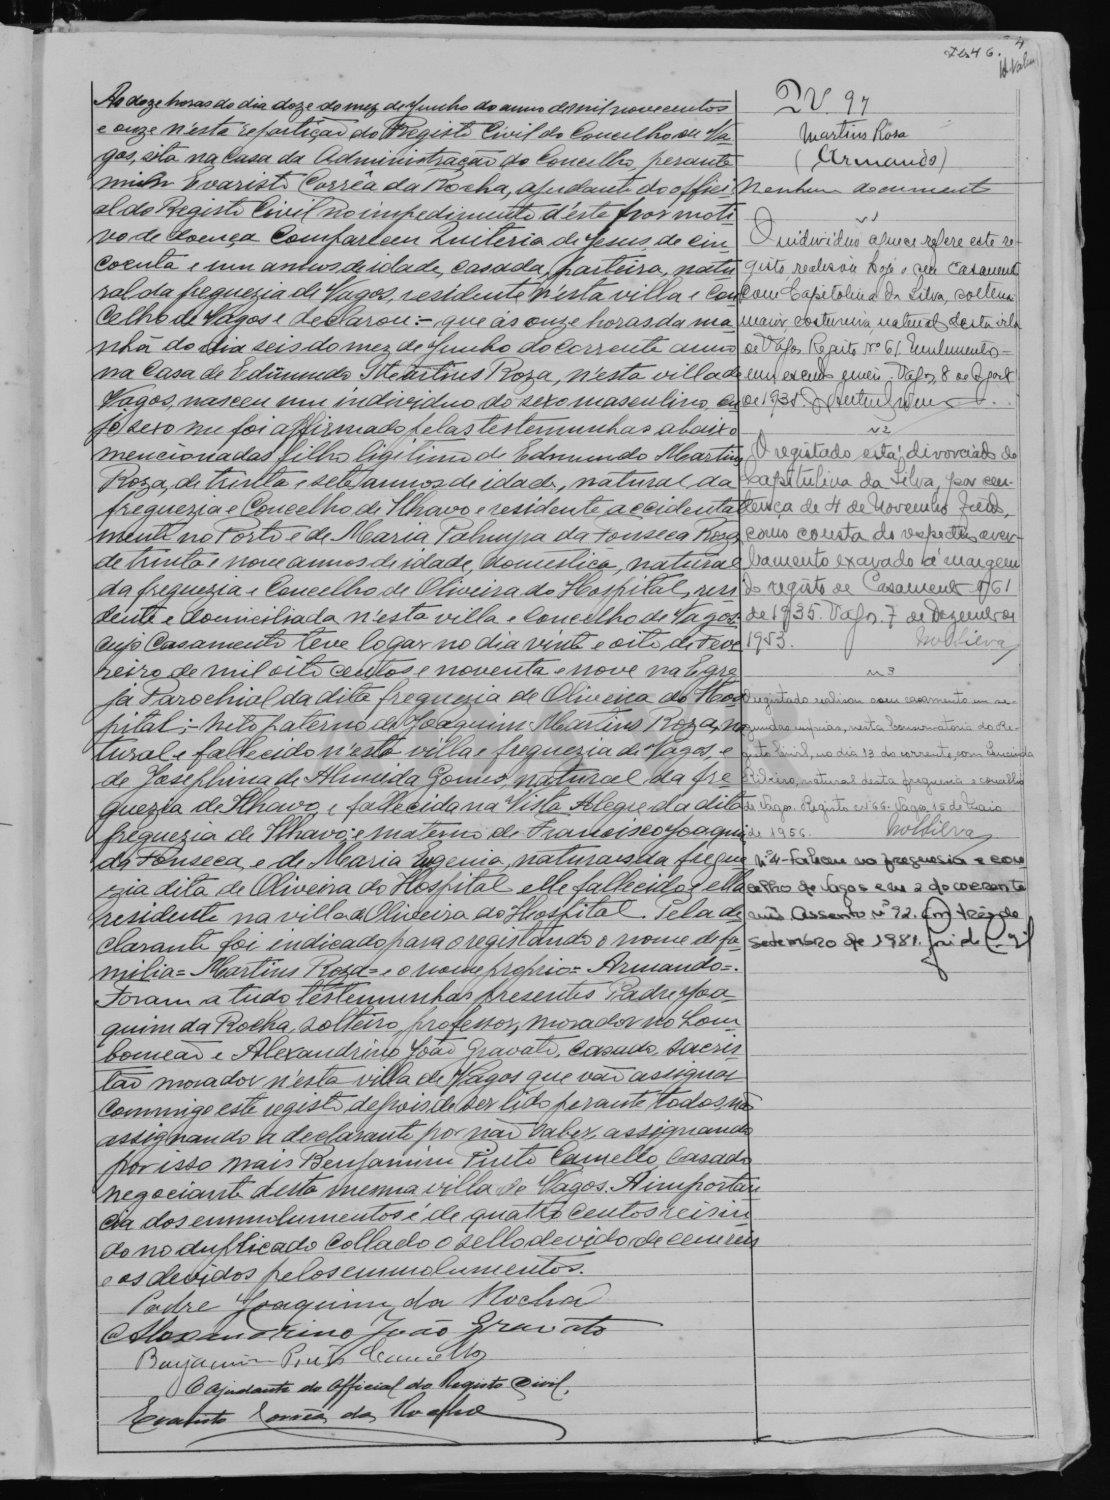 Ás doze horas do dia doze do mez de Junho do anno de mil novecentos
e onze n'esta repartição do Registo Civil do Concelho de Va-
gos, sita na casa da Administração do Concelho, perante
mim Evaristo Corrêa da Rocha, ajudante do offici-
al do Registo Civil no impedimento d'este por moti-
vo de doença Compareceu Quiteria de Jesus, de cin-
coenta e um annos de idade, casada, parteira, natu-
ral da freguezia de Vagos, residente n'esta villa e Con-
celho de Vagos e declarou:- que ás onze horas da ma-
nhã do dia seis do mez de Junho do corrente anno
na casa de Edmundo Martins Roza, n'esta villa de
Vagos, nasceu um individuo do sexo masculino, cu-
jo sexo me foi affirmado pelas testemunhas abaixo
mencionadas filho ligitimo de Edmundo Martins
Roza, de trinta e sete annos de idade, natural da
freguezia e Concelho de Ilhavo e residente accidental-
mente no Porto e de Maria Palmyra da Fonseca Roza
de trinta e nove annos de idade, domestica, natural
da freguezia e Concelho de Oliveira do Hospital, resi-
dente e domiciliada n'esta villa e Concelho de Vagos
cujo Casamento teve logar no dia vinte e oito de Feve-
reiro de mil oito centos e noventa e nove na Egre-
ja Parochial da dita freguezia de Oliveira do Hos-
pital;- neto paterno de Joaquim Martins Roza, na-
tural e fallecido n'esta villa e freguezia de Vagos, e
de Josephina de Almeida Gomes, natural da fre-
guezia de Ilhavo, e fallecida na Vista Alegre da dita
freguezia de Ilhavo; e materno de Francisco Joaquim
da Fonseca, e de Maria Eugenia, naturaes da fregue-
zia dita de Oliveira do Hospital elle fallecido e ella
residente na villa de Oliveira do Hospital. Pela de-
clarante foi indicado para o registando o nome de fa-
milia= Martins Roza= e o nome proprio= Armando=.
Foram a tudo testemunhas presentes Padre Joa-
quim da Rocha, solteiro, professor, morador no Lom-
bomeão e Alexandrino João Gravato, casado, sacris-
tão morador n'esta villa de Vagos que vão assignar
commigo este registo depois de ser lido perante todos, não
assignando a declarante por não saber, assignando
por isso mais Benjamim Pinto Camello, casado
negociante desta mesma villa de Vagos. A importan-
cia dos emmolumentos é de quatro centos reis in-
do no duplicado collado o sello devido de cem reis
e os devidos pelos emmolumentos.
Padre Joaquim da Rocha
Alexandrino João Gravato
Benjamim Pinto Camello
O ajudante do Official do Registo Civil,
Evaristo Corrêa da Rocha
4
Nº 97
Martins Rosa
(Armando)
Nenhum documento
nº 1
O individuo a que se refere este re-
gisto realisou hoje o seu casamento
com Capitolina da Silva, solteira
maior, costureira, natural desta vila
de Vagos. Registo Nº 61. Emolumento=
Vagos, 8 de
de 1935.
nº 2
O registado está divorciado de
Capitolina da Silva, por sen-
tença de 4 de Novembro findo,
como consta do respectivo aver-
bamento exarado á margem
do registo de Casamento nº 61
de 1935. Vagos. 7 de Dezembro de
1953.
nº 3
O registado realisou com casamento em se-
gundas nupcias, nesta Conservatoria do Re-
gisto Civil, no dia 13 do corrente, com
Ribeiro, natural desta freguesia e concelho
de Vagos. Registo nº 66. Vagos, 15 de Maio
de 1956.
Nº 4- Faleceu na freguesia e con-
celho de Vagos em 2 do corrente
mês Assento nº 92. Em três de
setembro de 1981.